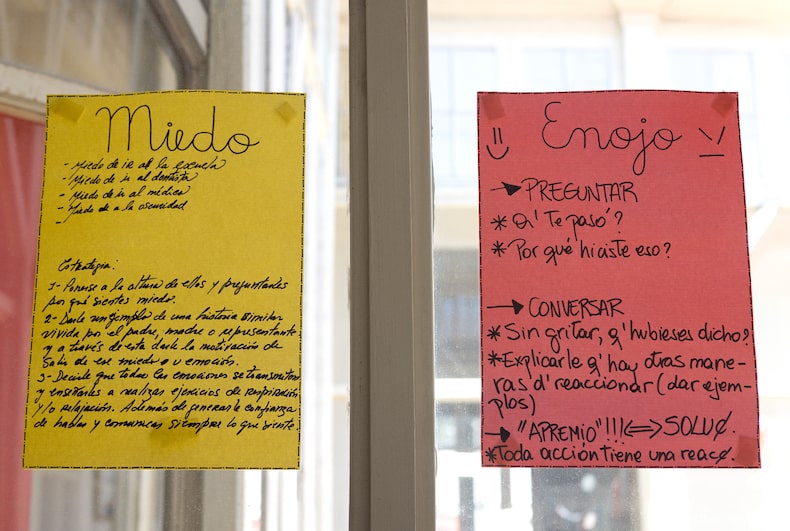 Miedo
- Miedo de ir a la escuela
- Miedo de ir al dentista
- Miedo de ir al médico
- Miedo de a la oscuridad
-
Estrategia:
1- Ponerse a la altura de ellos y preguntarles
por qué sientes miedo.
2- Darle un ejemplo de una historia similar
vivida por el padre, madre o representante
y a través de esta darle la motivación de
Salir de ese miedo o emoción.
3- Decirle que todas las emociones se
y enseñarles a realizar ejercicios de respiración
y/o relajación. Además de generarle confianza
de hablar y comunicar siempre lo que siente.
Enojo
→ PREGUNTAR
* Q' Te pasó?
* Por qué hiciste eso?
→ CONVERSAR
* Sin gritar, q' hubieses dicho?
* Explicarle q' hay otras mane-
ras d' reaccionar (dar ejem-
plos)
→ "APREMIO"!!! ⟺ SOLUØ.
* Toda acción tiene una reacØ.